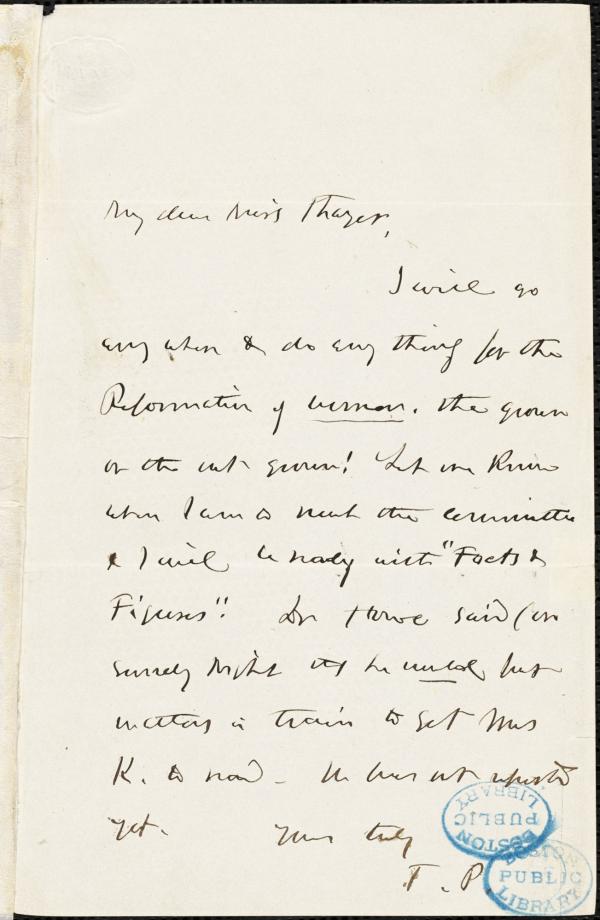 My dear Miss Thayer,
I will go
any when & do any thing for the
Reformation of women. the grown
or the not grown! Let me know
when I am to meet the committee
& I will be ready with "Facts &
Figures"! Dr Howe said (on
Sunday Night he would put
matters in train to get Mrs
K. to read - He has not reported
yet. Yours truly
T. P.
BOSTON PUBLIC LIBRARY
BOSTON PUBLIC LIBRARY